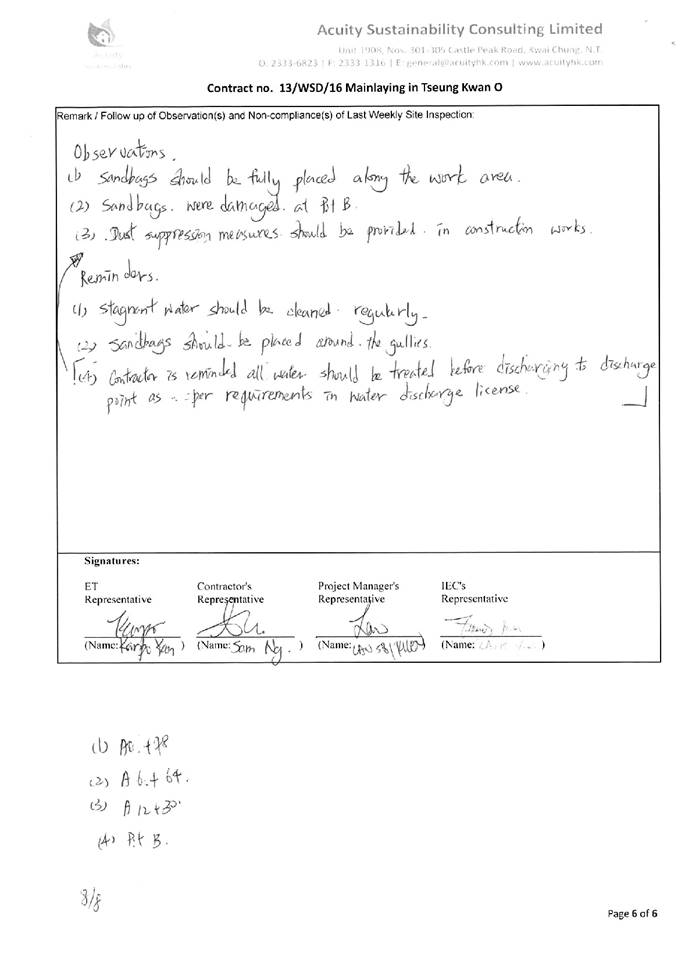 Acuity Sustainability Consulting Limited
Unit 1908, Nos. 301-305 Castle Peak Road, Kwai Chung, N.T.
O: 2333-6823 | F: 2333-1316 | E: general@acuityhk.com | www.acuityhk.com
Contract no. 13/WSD/16 Mainlaying in Tseung Kwan O
Remark / Follow up of Observation(s) and Non-compliance(s) of Last Weekly Site Inspection:
Observations.
(1) Sandbags should be fully placed along the work area.
(2) Sandbags. were damaged. at Pit B.
(3) Dust suppression measures should be provided in construction works.
Reminders.
(1) Stagnant water should be cleaned regularly.
(2) Sandbags should be placed around the gullies.
(4) Contractor is reminded all water should be treated before discharging to discharge
point as per requirements in water discharge license.
Signatures:
ET Representative
Contractor's Representative
Project Manager's Representative
IEC's Representative
(Name: )
(Name: Sam Ng. )
(Name: )
(Name: )
(2) A 6+64.
(3) A 12+30.
(4) Pit B.
8/8
Page 6 of 6